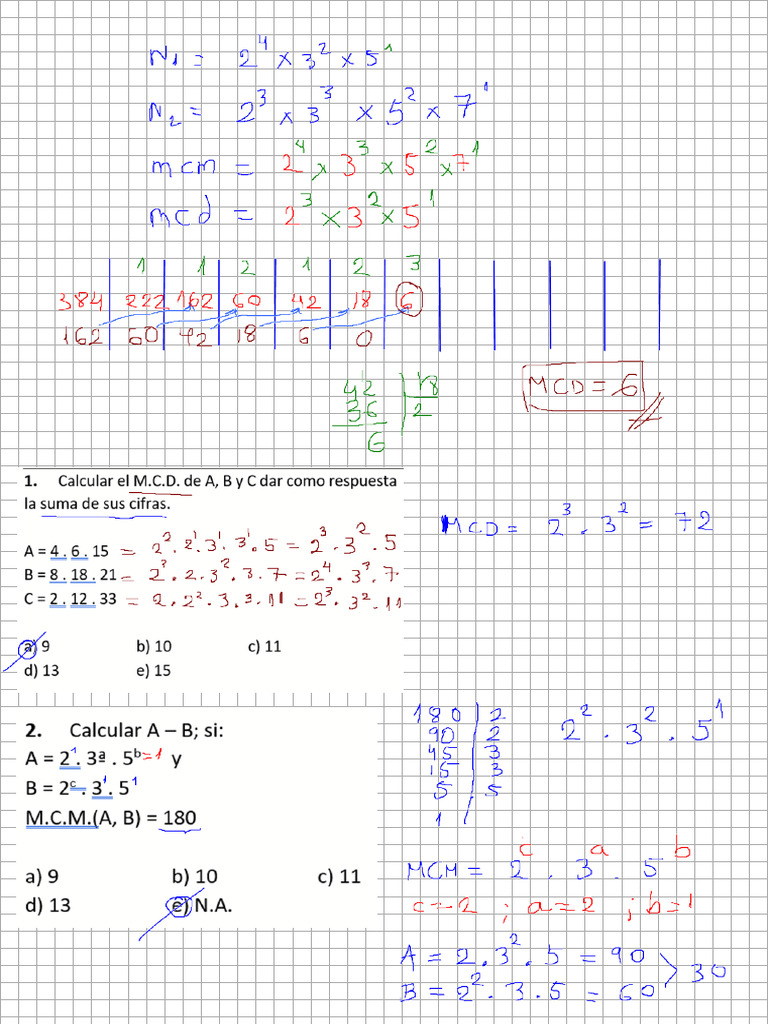 N₁ = 2⁴ × 3² × 5¹
N₂ = 2³ × 3³ × 5² × 7¹
mcm = 2⁴ × 3³ × 5² × 7¹
mcd = 2³ × 3² × 5¹
1 1 2 1 2 3
384 222 162 60 42 18 6
162 60 42 18 6 0
42 18
36 2
6
MCD = 6
1. Calcular el M.C.D. de A, B y C dar como respuesta
la suma de sus cifras.
A = 4 . 6 . 15 = 2² . 2¹ . 3¹ . 3¹ . 5 = 2³ . 3² . 5
B = 8 . 18 . 21 = 2³ . 2 . 3² . 3 . 7 = 2⁴ . 3³ . 7
C = 2 . 12 . 33 = 2 . 2² . 3 . 3 . 11 = 2³ . 3² . 11
MCD = 2³ . 3² = 72
a) 9 b) 10 c) 11
d) 13 e) 15
2. Calcular A – B; si:
A = 2¹ . 3ª . 5ᵇ=1 y
B = 2ᶜ . 3¹ . 5¹
M.C.M.(A, B) = 180
a) 9 b) 10 c) 11
d) 13 e) N.A.
180 2
90 2
45 3
15 3
5 5
1
2² . 3² . 5¹
MCM = 2ᶜ . 3ᵃ . 5ᵇ
c=2 ; a=2 ; b=1
A = 2 . 3² . 5 = 90
B = 2² . 3 . 5 = 60
> 30